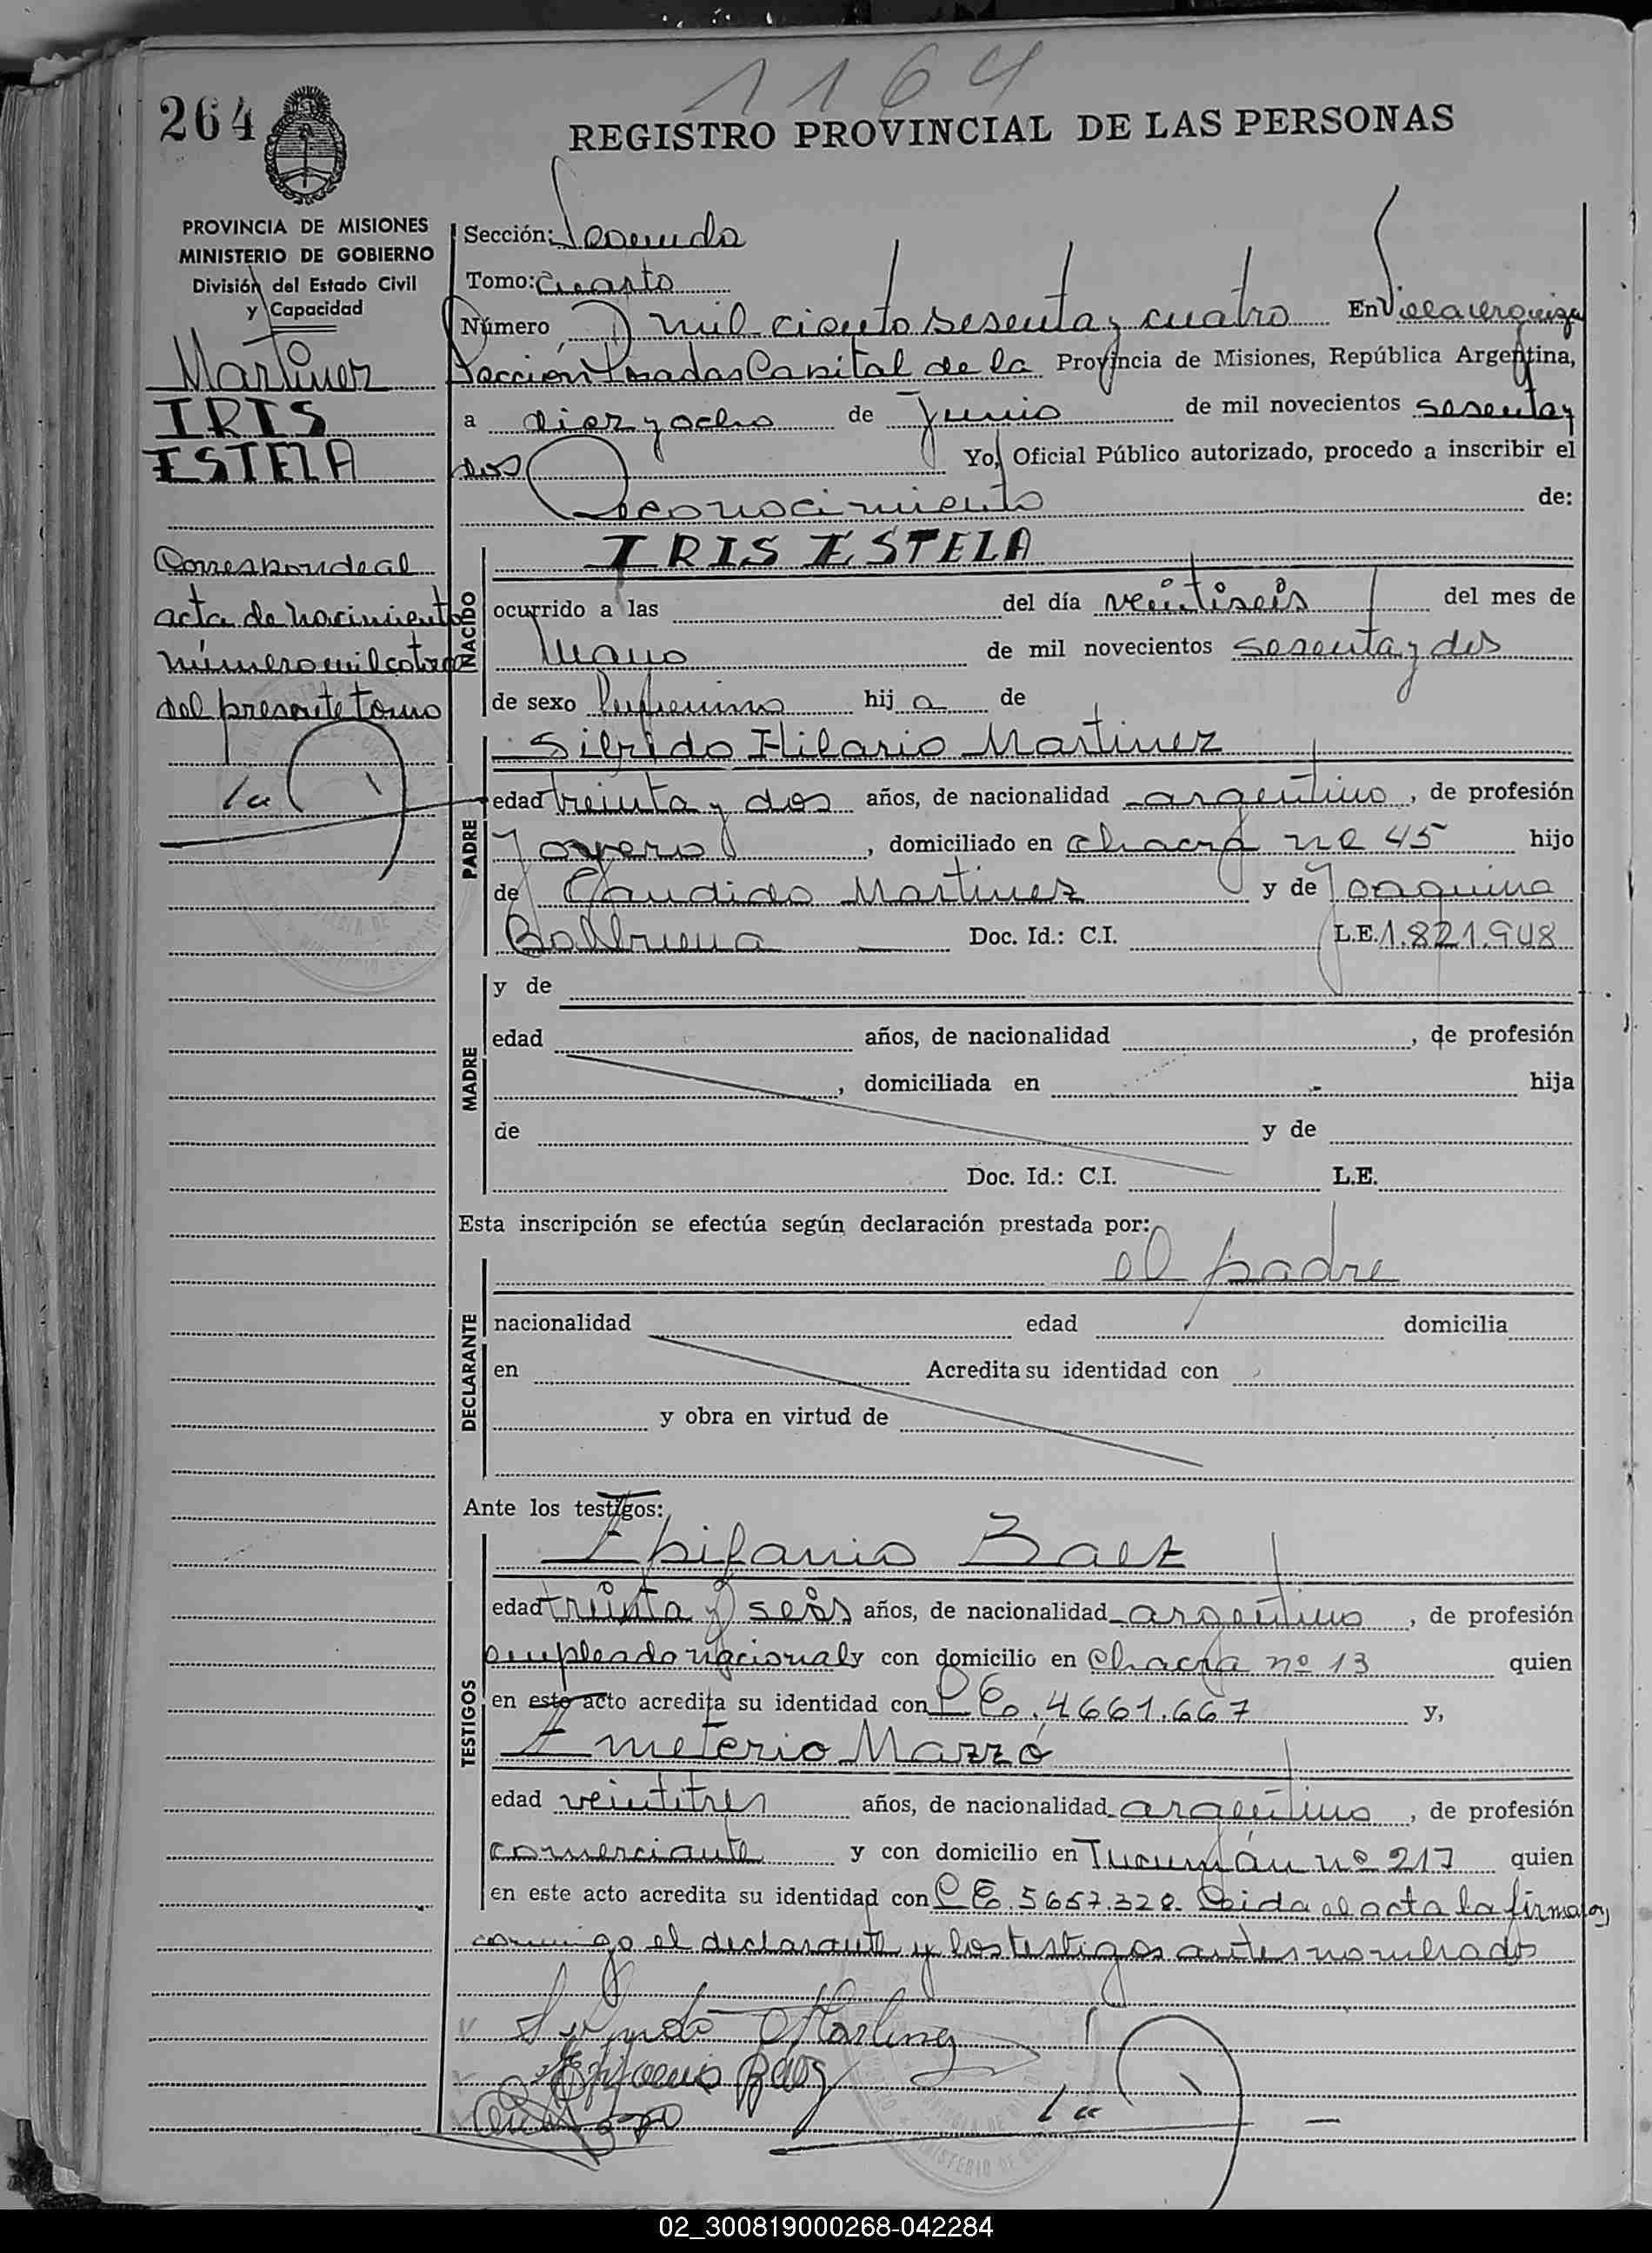 1164
264
REGISTRO PROVINCIAL DE LAS PERSONAS
PROVINCIA DE MISIONES
MINISTERIO DE GOBIERNO
División del Estado Civil
y Capacidad
Martinez
IRIS
ESTELA
Corresponde al
acta de nacimiento
número mil
del presente tomo
Sección: Segunda
Tomo: Cuarto
Número mil ciento sesenta y cuatro En Villa Urquiza
Sección Posadas Capital de la Provincia de Misiones, República Argentina,
a diez y ocho de Junio de mil novecientos sesenta y
dos Yo, Oficial Público autorizado, procedo a inscribir el
Reconocimiento de:
NACIDO
IRIS ESTELA
ocurrido a las del día veintiseis del mes de
Mayo de mil novecientos sesenta y dos
de sexo femenino hij a de
PADRE
Silfrido Hilario Martinez
edad treinta y dos años, de nacionalidad argentino, de profesión
Joyero, domiciliado en chacra no 45 hijo
de Candido Martinez y de Joaquina
Balbuena Doc. Id.: C.I. L.E. 1.821.948
MADRE
y de
edad años, de nacionalidad , de profesión
, domiciliada en hija
de y de
Doc. Id.: C.I. L.E.
Esta inscripción se efectúa según declaración prestada por:
el padre
DECLARANTE
nacionalidad edad domicilia
en Acredita su identidad con
y obra en virtud de
Ante los testigos:
TESTIGOS
Epifanio Baez
edad treinta y seis años, de nacionalidad argentino, de profesión
empleado nacional y con domicilio en Chacra nº 13 quien
en este acto acredita su identidad con L E. 4661.667 y,
Emeterio Mazzó
edad veintitres años, de nacionalidad argentino, de profesión
comerciante y con domicilio en Tucumán no 217 quien
en este acto acredita su identidad con L E. 5657.328. Leida el acta la firman
conmigo el declarante y los testigos antes nombrados
Martinez
Epifanio Baez
02_300819000268-042284